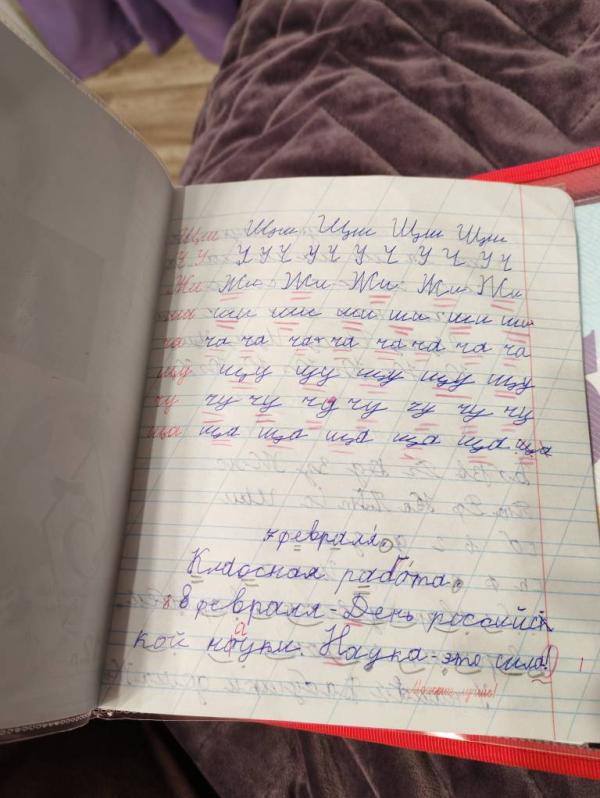 Щи Щи Щи Щи Щи
У У У У Ч У Ч У Ч У Ч У Ч
Жи Жи Жи Жи Жи Жи
ши ши ши ши ши ши ши
ча ча ча ча ча ча ча ча
щу щу щу щу щу щу
чу чу чу чу чу чу чу чу
ща ща ща ща ща ща ща
7 февраля.
Класная работа.
8 8 февраля - День российс
кой науки. Наука - это сила!